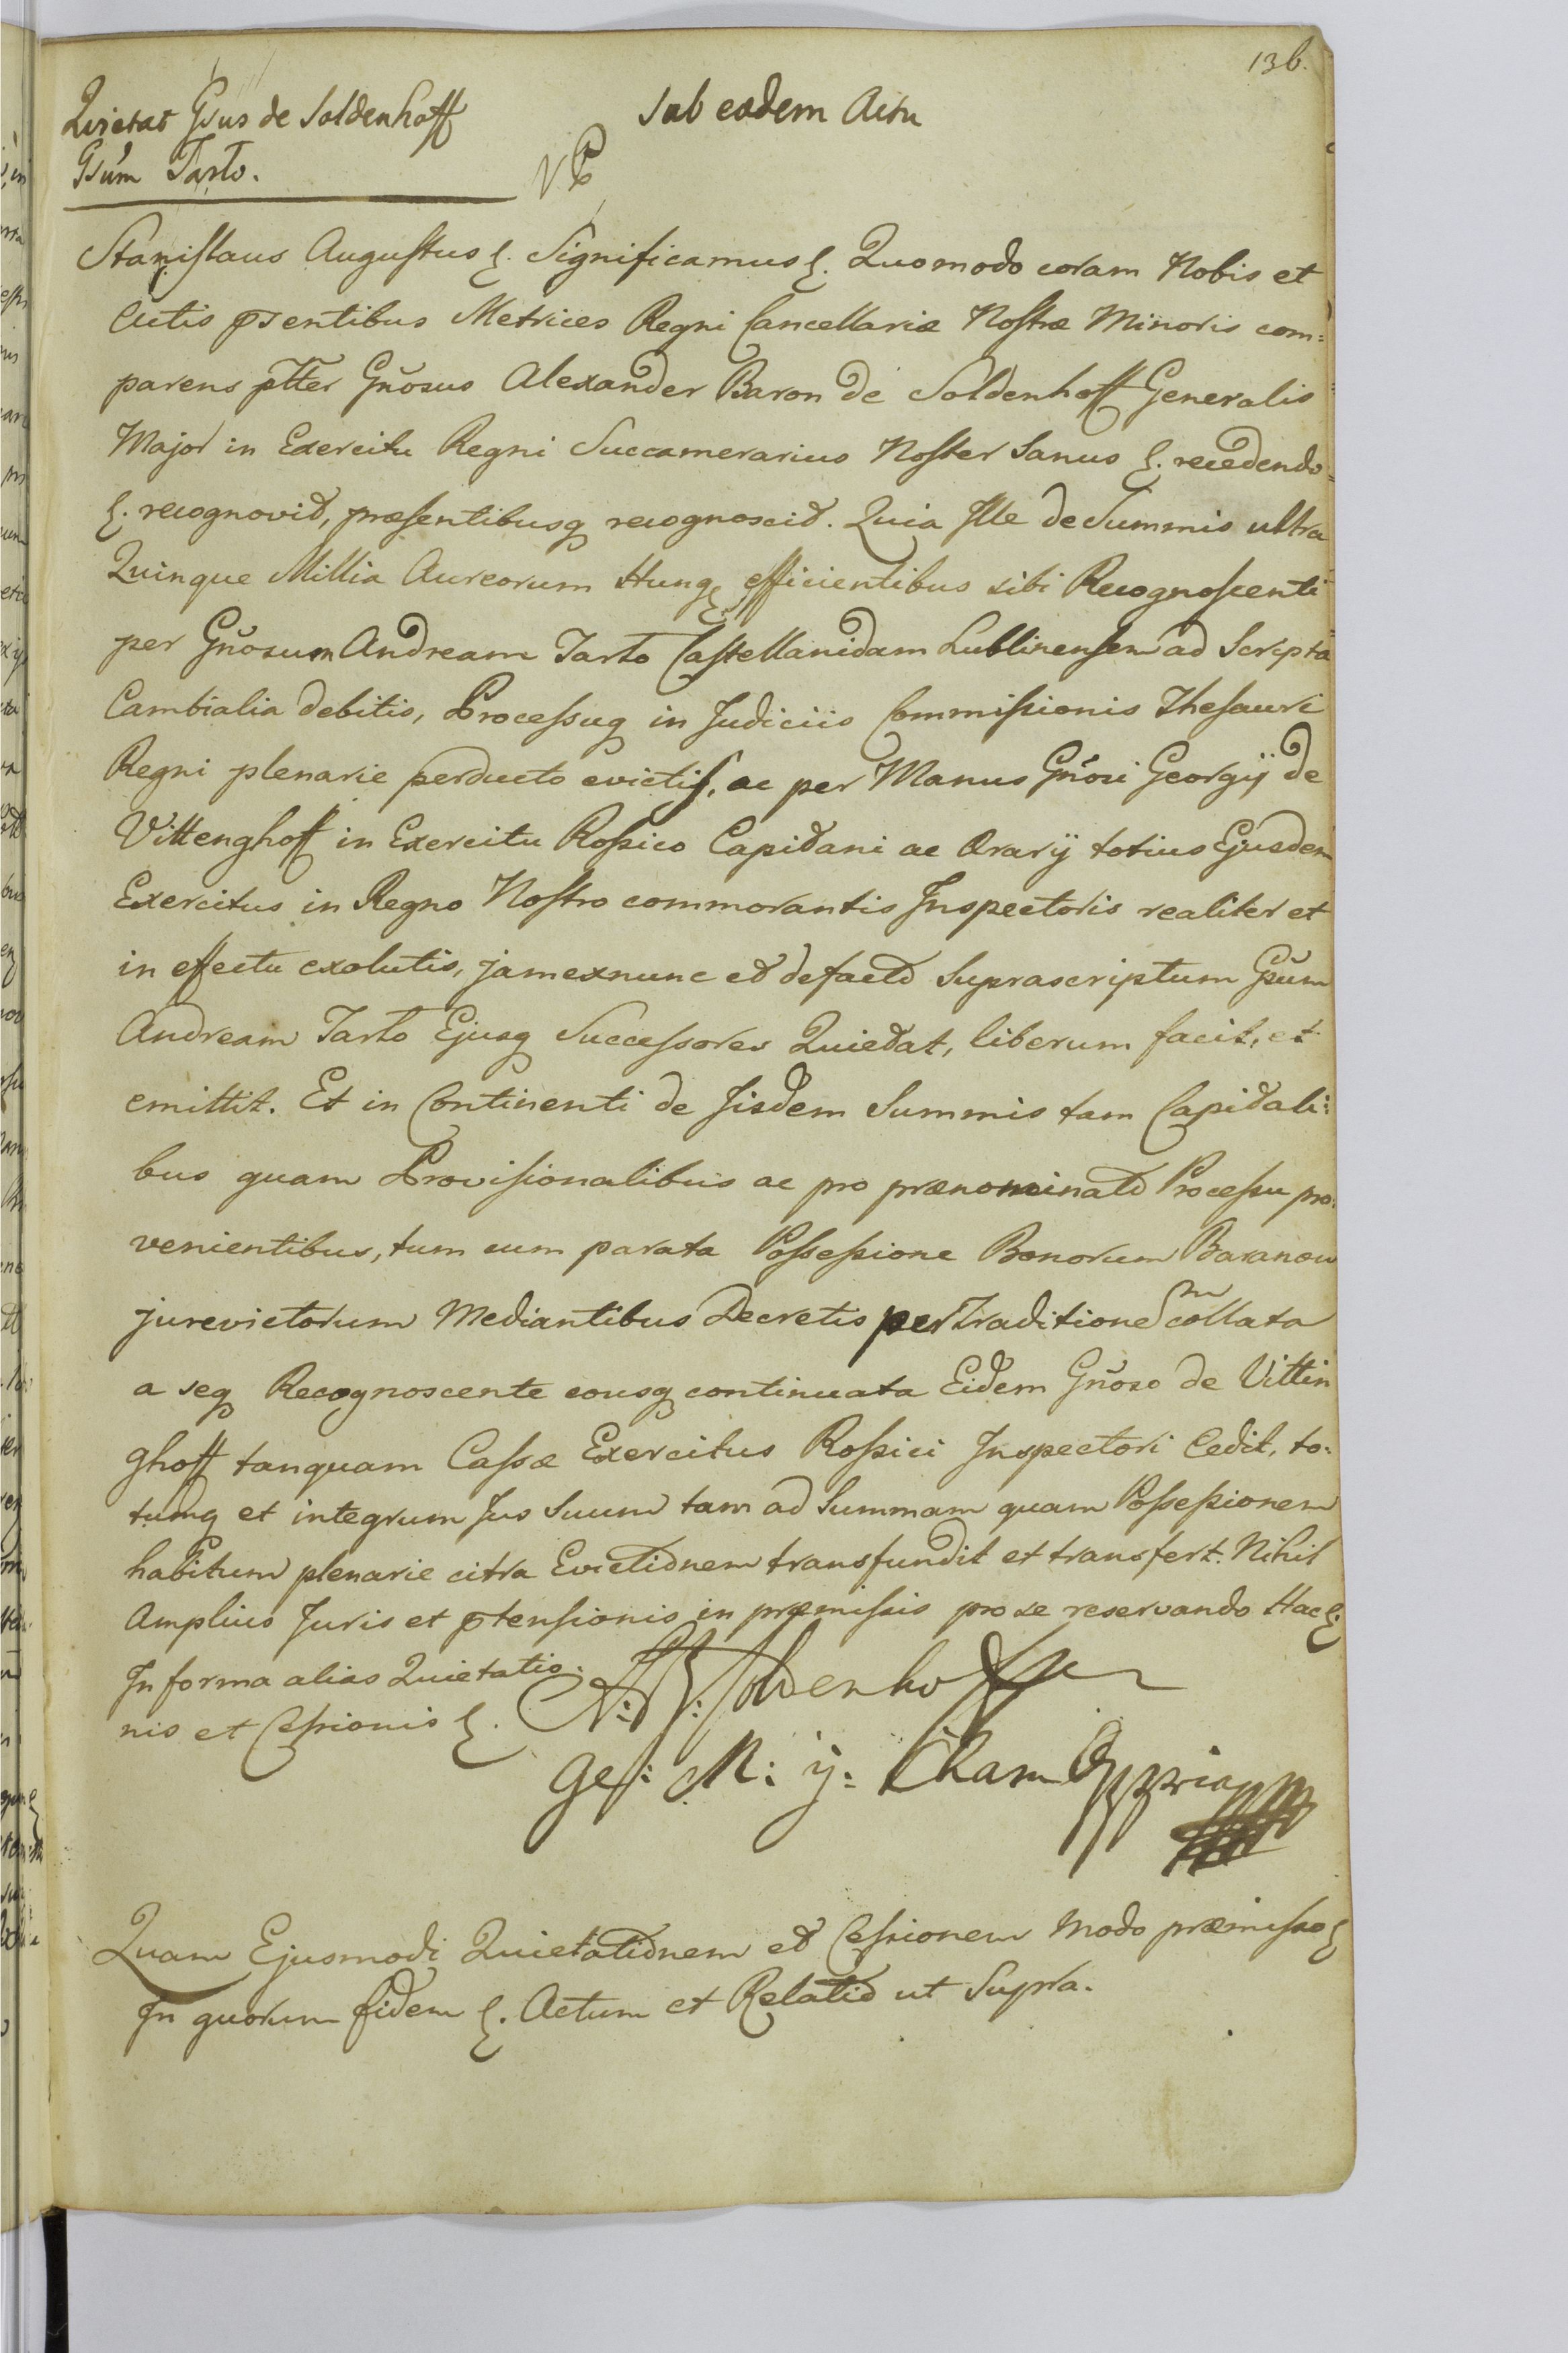 136.
Quietat Gsus de Soldenhoff
Gsum Tarło.
Sub eodem Actu
Stanislaus Augustus &. Significamus &. Quomodo coram Nobis et
Actis psentibus Metrices Regni Cancellariæ Nostræ Minoris com:
parens pltter Gnosus Alexander Baron de Soldenhoff Generalis
Major in Exercitu Regni Succamerarius Noster Sanus &. recedendo
&. recognovit, præsentibusq recognoscit. Quia Ille de Summis ultra
Quinque Millia Aureorum Hung efficientibus sibi Recognoscenti
per Gnosum Andream Tarło Castellanidam Lublinensem ad Scripta
Cambialia debitis, Processuq in Judiciis Commissionis Thesauri
Regni plenarie perducto evictis, ac per Manus Gnosi Georgij de
Vittenghoff in Exercitu Rossico Capitani ac Ærarij totius Ejusdem
Exercitus in Regno Nostro commorantis Inspectoris realiter et
in effectu exolutis, jam exnunc et defacto Suprascriptum Gsum
Andream Tarło Ejusq Successores Quietat, liberum facit, et
emittit. Et in Continenti de Iisdem Summis tam Capitali:
bus quam Provisionalibus ac pro prænominato Processu pro:
venientibus, tum cum parata Possessione Bonorum Baranow
jurevictorum Mediantibus Decretis per Traditionem collata
a seq Recognoscente eousq continuata Eidem Gnoso de Vittin
ghoff tanquam Cassæ Exercitus Rossici Inspectori Cedit, to:
tumq et integrum Jus Suum tam ad Summam quam Possessionem
habitum plenarie citra Evictionem transfundit et transfert. Nihil
Amplius Juris et ptensionis in præmissis pro se reservando Hac &.
In forma alias Quietatio:
nis et Cessionis &.
A: B: Soldenhoff
Ge: M: y: Cham
Quam Ejusmodi Quietationem et Cessionem Modo præmisso &
In quorum fidem &. Actum et Relatio ut Supra.